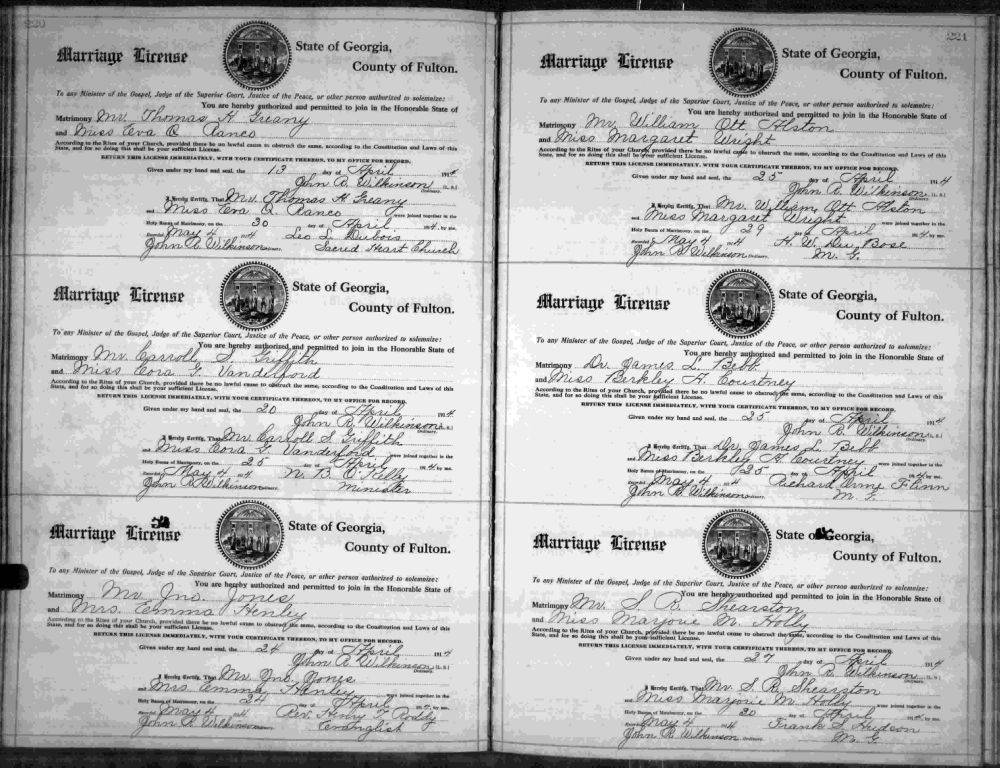 220
Marriage License
State of Georgia,
County of Fulton.
To any Minister of the Gospel, Judge of the Superior Court, Justice of the Peace, or other person authorized to solemnize:
You are hereby authorized and permitted to join in the Honorable State of
Matrimony Mr. Thomas H. Greany
and Miss Eva Q. Ranco
According to the Rites of your Church, provided there be no lawful cause to obstruct the same, according to the Constitution and Laws of this
State, and for so doing this shall be your sufficient License.
RETURN THIS LICENSE IMMEDIATELY, WITH YOUR CERTIFICATE THEREON, TO MY OFFICE FOR RECORD.
Given under my hand and seal, the 13 day of April 1914
John R. Wilkinson (L. S.)
Ordinary.
I Hereby Certify, That Mr. Thomas H. Greany
and Miss Eva Q. Ranco were joined together in the
Holy Banns of Matrimony, on the 30 day of April 1914, by me.
Recorded May 4 1914 Leo L. Dubois
John R. Wilkinson Ordinary. Sacred Heart Church
Marriage License
State of Georgia,
County of Fulton.
To any Minister of the Gospel, Judge of the Superior Court, Justice of the Peace, or other person authorized to solemnize:
You are hereby authorized and permitted to join in the Honorable State of
Matrimony Mr. Carroll S. Griffith
and Miss Cora G. Vanderford
According to the Rites of your Church, provided there be no lawful cause to obstruct the same, according to the Constitution and Laws of this
State, and for so doing this shall be your sufficient License.
RETURN THIS LICENSE IMMEDIATELY, WITH YOUR CERTIFICATE THEREON, TO MY OFFICE FOR RECORD.
Given under my hand and seal, the 20 day of April 1914
John R. Wilkinson (L. S.)
Ordinary.
I Hereby Certify, That Mr. Carroll S. Griffith
and Miss Cora G. Vanderford were joined together in the
Holy Banns of Matrimony, on the 25 day of April 1914, by me.
Recorded May 4 1914 N. B. O'Kelly
John R. Wilkinson Ordinary. Minister
Marriage License
State of Georgia,
County of Fulton.
To any Minister of the Gospel, Judge of the Superior Court, Justice of the Peace, or other person authorized to solemnize:
You are hereby authorized and permitted to join in the Honorable State of
Matrimony Mr. Jno. Jones
and Mrs. Emma Henley
According to the Rites of your Church, provided there be no lawful cause to obstruct the same, according to the Constitution and Laws of this
State, and for so doing this shall be your sufficient License.
RETURN THIS LICENSE IMMEDIATELY, WITH YOUR CERTIFICATE THEREON, TO MY OFFICE FOR RECORD.
Given under my hand and seal, the 24 day of April 1914
John R. Wilkinson (L. S.)
Ordinary.
I Hereby Certify, That Mr. Jno. Jones
and Mrs. Emma Henley were joined together in the
Holy Banns of Matrimony, on the 24 day of April 1914, by me.
Recorded May 4 1914 Rev. Henry F. Roddy
John R. Wilkinson Ordinary. Evanglist
221
Marriage License
State of Georgia,
County of Fulton.
To any Minister of the Gospel, Judge of the Superior Court, Justice of the Peace, or other person authorized to solemnize:
You are hereby authorized and permitted to join in the Honorable State of
Matrimony Mr. William Ott Alston
and Miss Margaret Wright
According to the Rites of your Church, provided there be no lawful cause to obstruct the same, according to the Constitution and Laws of this
State, and for so doing this shall be your sufficient License.
RETURN THIS LICENSE IMMEDIATELY, WITH YOUR CERTIFICATE THEREON, TO MY OFFICE FOR RECORD.
Given under my hand and seal, the 25 day of April 1914
John R. Wilkinson (L. S.)
Ordinary.
I Hereby Certify, That Mr. William Ott Alston
and Miss Margaret Wright were joined together in the
Holy Banns of Matrimony, on the 29 day of April 1914, by me.
Recorded May 4 1914 H. W. Du Bose
John R. Wilkinson Ordinary. M. G.
Marriage License
State of Georgia,
County of Fulton.
To any Minister of the Gospel, Judge of the Superior Court, Justice of the Peace, or other person authorized to solemnize:
You are hereby authorized and permitted to join in the Honorable State of
Matrimony Dr. James L. Bebb
and Miss Berkley A. Courtney
According to the Rites of your Church, provided there be no lawful cause to obstruct the same, according to the Constitution and Laws of this
State, and for so doing this shall be your sufficient License.
RETURN THIS LICENSE IMMEDIATELY, WITH YOUR CERTIFICATE THEREON, TO MY OFFICE FOR RECORD.
Given under my hand and seal, the 25 day of April 1914
John R. Wilkinson (L. S.)
Ordinary.
I Hereby Certify, That Dr. James L. Bibb
and Miss Berkley A. Courtney were joined together in the
Holy Banns of Matrimony, on the 25 day of April 1914, by me.
Recorded May 4 1914 Richard Orme Flinn
John R. Wilkinson Ordinary. M. G.
Marriage License
State of Georgia,
County of Fulton.
To any Minister of the Gospel, Judge of the Superior Court, Justice of the Peace, or other person authorized to solemnize:
You are hereby authorized and permitted to join in the Honorable State of
Matrimony Mr. S. R. Shearston
and Miss Marjorie M. Holly
According to the Rites of your Church, provided there be no lawful cause to obstruct the same, according to the Constitution and Laws of this
State, and for so doing this shall be your sufficient License.
RETURN THIS LICENSE IMMEDIATELY, WITH YOUR CERTIFICATE THEREON, TO MY OFFICE FOR RECORD.
Given under my hand and seal, the 27 day of April 1914
John R. Wilkinson (L. S.)
Ordinary.
I Hereby Certify, That Mr. S. R. Shearston
and Miss Marjorie M. Holly were joined together in the
Holy Banns of Matrimony, on the 30 day of April 1914, by me.
Recorded May 4 1914 Frank S. Hudson
John R. Wilkinson Ordinary. M. G.